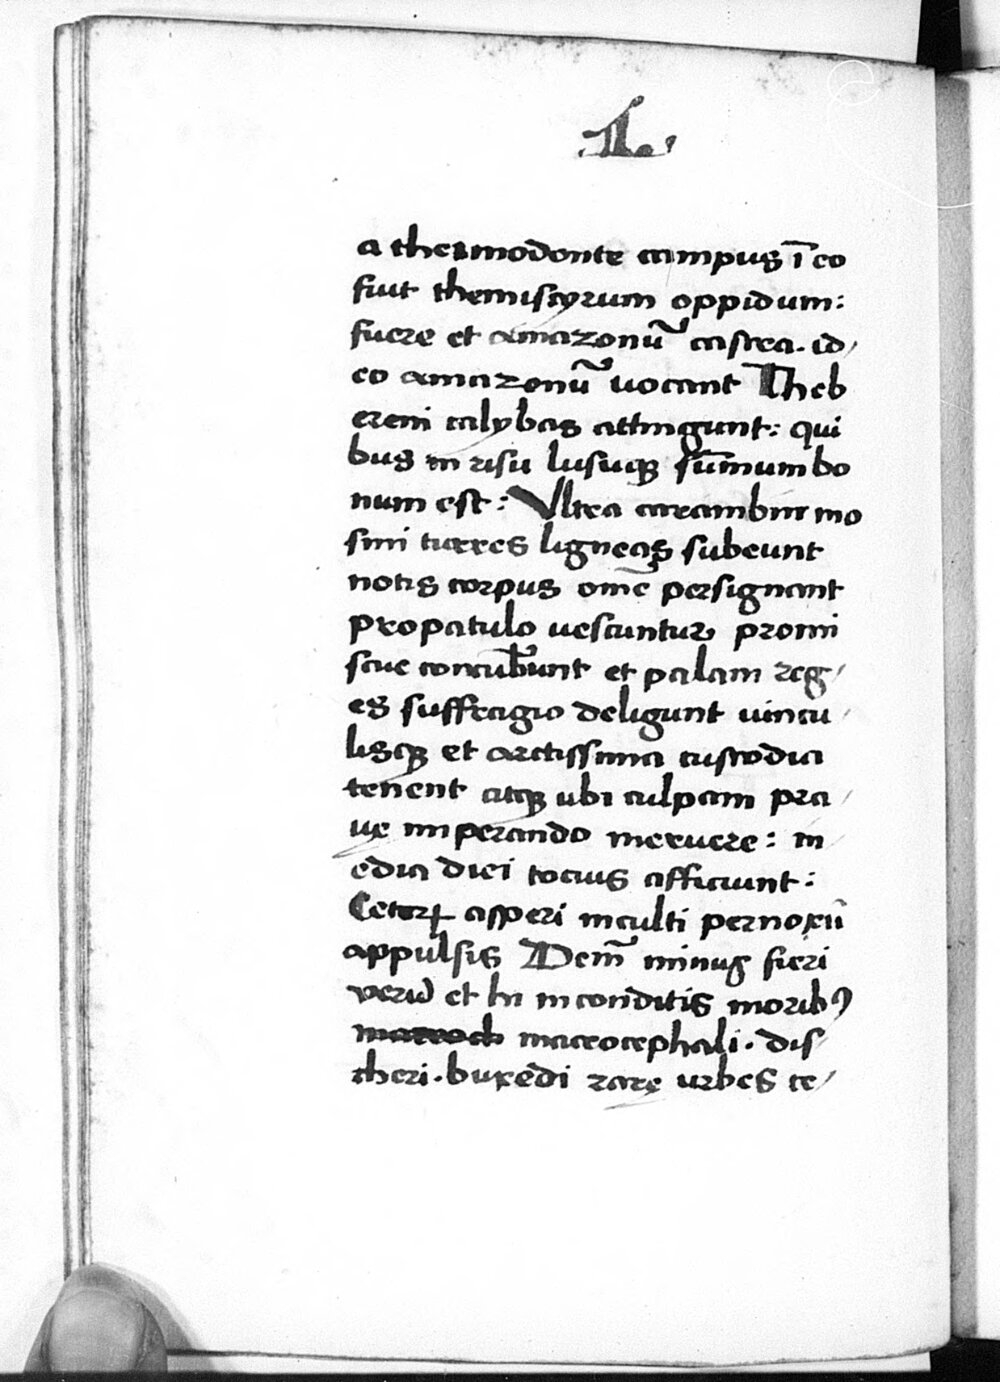 .L.
a thermodonte campus ī eo
fuit themiscyrum oppidum:
fuere et amazonū castra. id
eo amazonū uocant Theb
ereni calybas attingunt: qui
bus in risu lusuqꝫ sūmum bo
num est: Vltra carambim mo
sini turres ligneas subeunt
notis corpus omē persignant
propatulo uescuntur promi
scue concubūnt et palam reg
es suffragio deligunt uincu
lisqꝫ et arctissima custodia
tenent atqꝫ ubi culpam pra
ue imperando meruere: in
edia diei tocius afficiunt:
Ceterꝝ asperi inculti pernoxii
appulsis Dem̄ minus fieri
verū et hi inconditis moribꝯ
macrocephali. dis
cheri. buxedi rare urbes ce